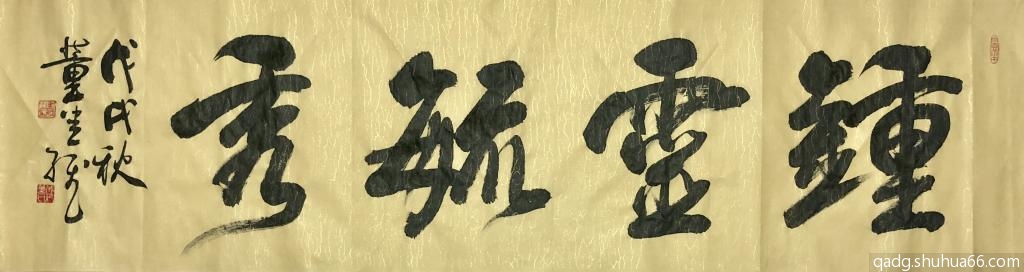 鍾靈毓秀
戊戌秋
董
qadg.shuhua66.com